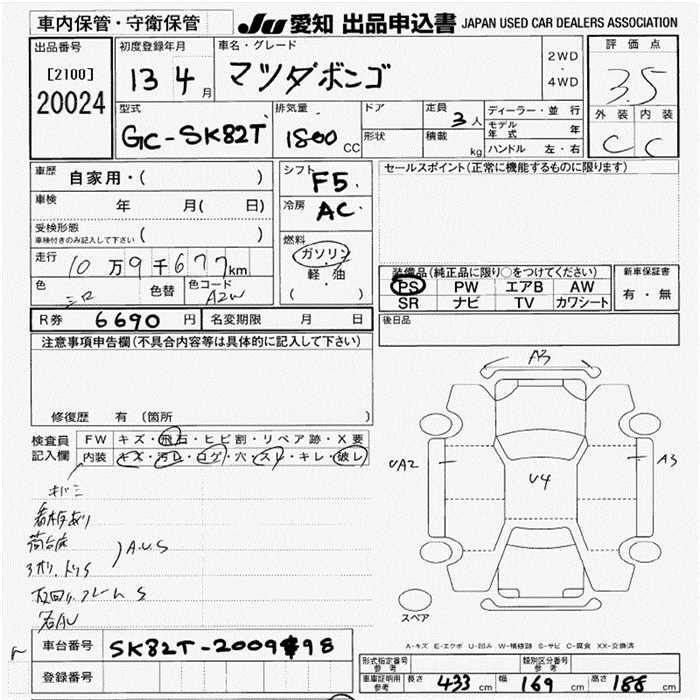 車内保管・守衛保管
JU 愛知 出品申込書 JAPAN USED CAR DEALERS ASSOCIATION
出品番号
[2100]
20024
初度登録年月
13 4 月
車名・グレード
マツダボンゴ
2WD
・
4WD
評価点
3.5
外装 内装
C C
型式
GC-SK82T
排気量
1800 CC
ドア
形状
定員 3 人
積載 kg
ディーラー・並行
モデル年式 年
ハンドル 左・右
車歴 自家用・( )
車検 年 月( 日)
受検形態
車検付きのみ記入して下さい ( )
走行 10万9千677km
色 シロ 色替 色コード A2W
シフト F5
冷房 AC
燃料
ガソリン
軽・油
( )
セールスポイント(正常に機能するものに限ります)
装備品(純正品に限り○をつけてください)
PS PW エアB AW
SR ナビ TV カワシート
新車保証書
有・無
後日品
R券 6690 円 名変期限 月 日
注意事項申告欄(不具合内容等は具体的に記入して下さい)
修復歴 有(箇所 )
検査員
記入欄
FW キズ・飛石・ヒビ割・リペア跡・X要
内装 キズ・汚レ・コゲ・穴・スレ・キレ・破レ
看板あり
荷台床
A.U.S
A3
UA2
U4
A3
スペア
A-キズ E-エクボ U-凹み W-補修跡 S-サビ C-腐食 XX-交換済
車台番号 SK82T-2009
98
登録番号
形式指定番号
参考
類別区分番号
参考
車庫証明用
参考
長さ 433 cm 幅 169 cm 高さ 188 cm